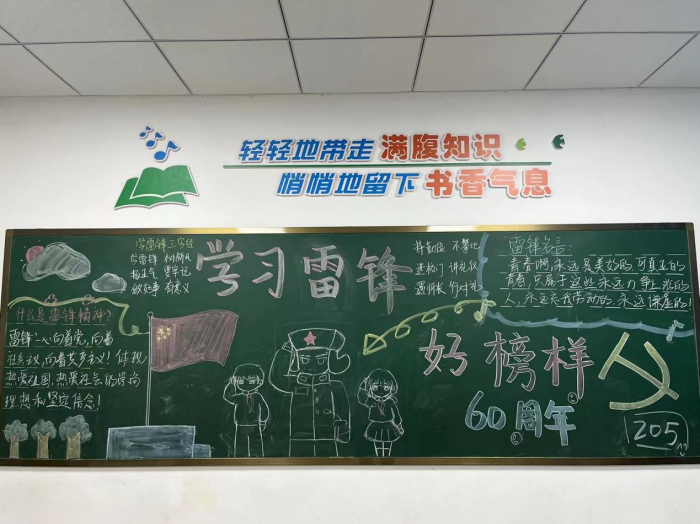 轻轻地带走 满腹知识
悄悄地留下 书香气息
学雷锋三字经
学雷锋 树新风
扬正气 要牢记
做好事 有意义
学习雷锋
好榜样
60周年
讲礼仪
雷锋名言:
青春啊,永远是美好的,可真正的
青春,只属于这些永远力争上游的
人,永远忘我劳动的,永远谦虚的
人
什么是雷锋精神?
雷锋一心向着党,向着
社会主义,向着共产主义!体现
热爱祖国,热爱社会的崇尚
理想和坚定信念!
205